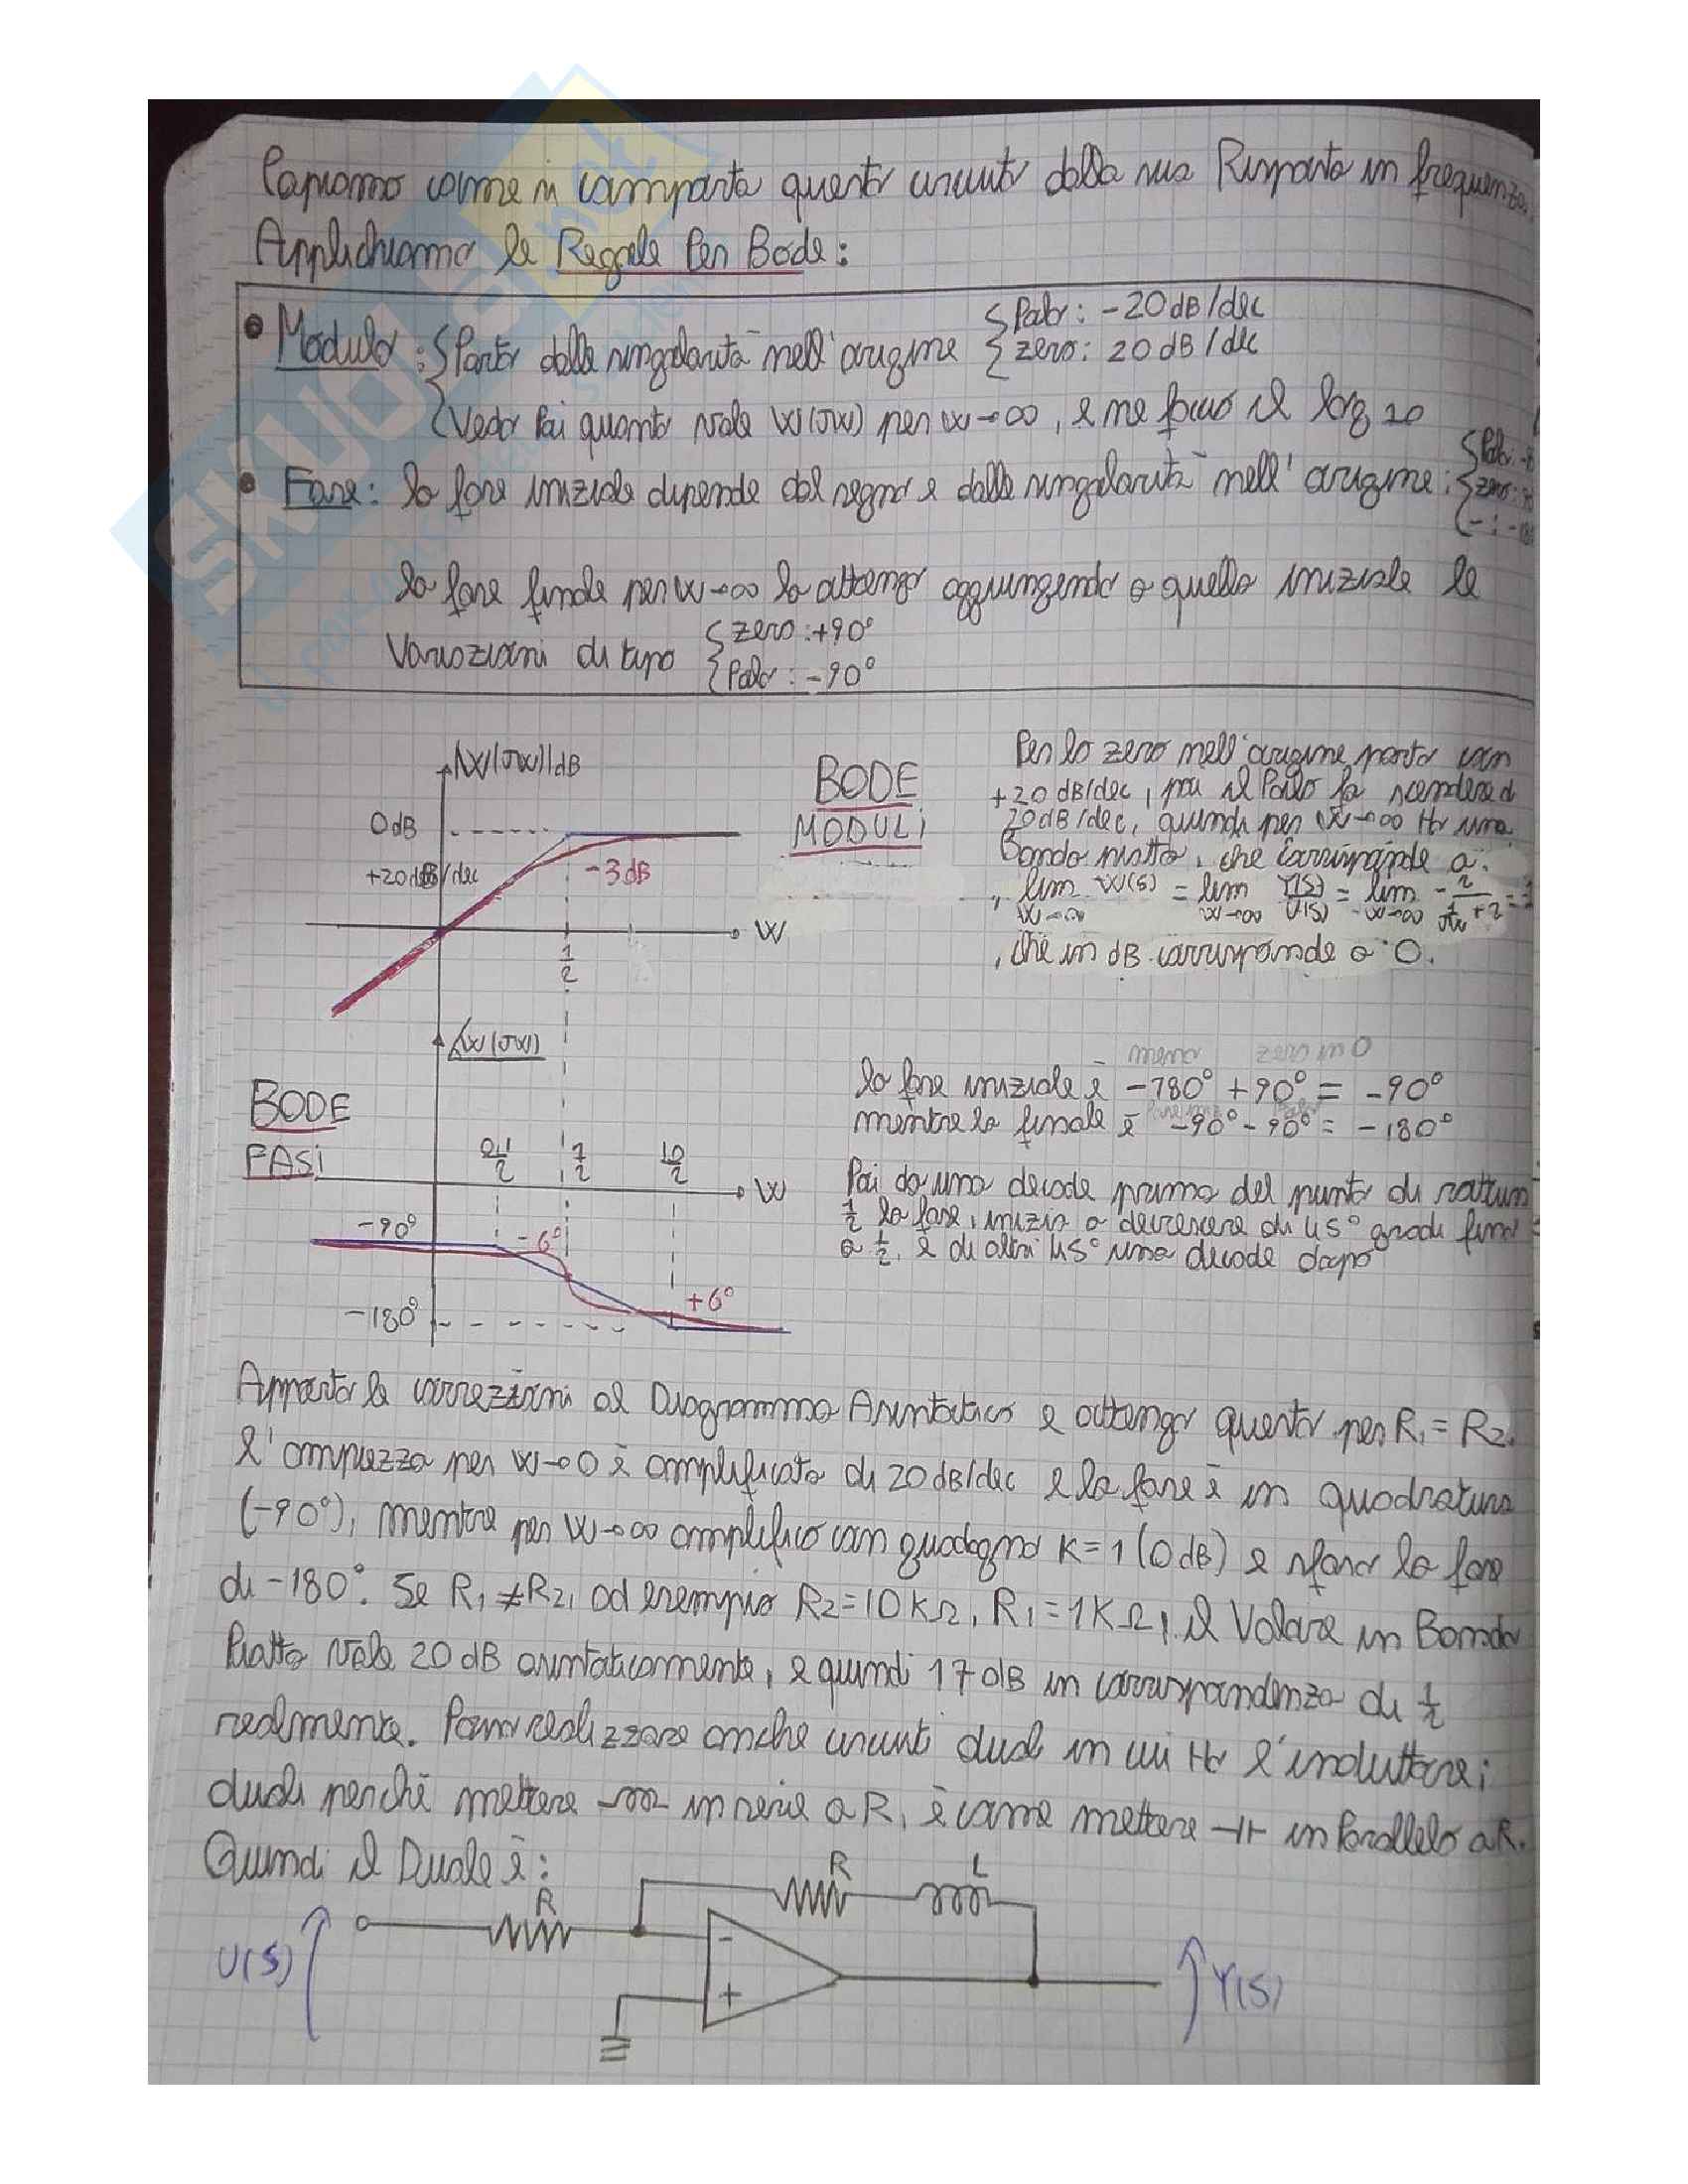 Capiamo come si comporta questo circuito dalla sua Risposta in frequenza.
Applichiamo le Regole Per Bode:
• Modulo: { Parto dalle singolarità nell'origine { Polo: -20dB/dec
{ zero: 20dB/dec
{ Vedo Poi quanto vale W(JW) per W→∞, e ne faccio il log 20
• Fase: la fase iniziale dipende dal segno e dalle singolarità nell'origine: { Polo:
{ zero:
{ - :
la fase finale per W→∞ la ottengo aggiungendo a quella iniziale le
Variazioni di tipo { zero: +90°
{ Polo: -90°
|W(JW)|dB
0dB
+20dB/dec
-3dB
W
1/2
BODE
MODULI
Per lo zero nell'origine parto con
+20 dB/dec, poi il Polo fa scendere di
20dB/dec, quindi per W→∞ Ho una
Banda piatta, che corrisponde a:
, lim W→∞ W(S) = lim W→∞ Y(S)/U(S) = lim W→∞ -2/(1/JW + 2) =
, che in dB corrisponde a 0.
∡W(JW)
BODE
FASI
0,1/2
1/2
10/2
W
-90°
-6°
-180°
+6°
meno zero in 0
la fase iniziale è -180° + 90° = -90°
mentre la finale è -90° - 90° = -180°
Poi da una decade prima del punto di rottura
1/2 la fase, inizia a decrescere di 45° gradi fino
a 1/2, e di altri 45° una decade dopo
Apporto le correzioni al Diagramma Asintotico e ottengo questo per R1 = R2.
l'ampiezza per W→0 è amplificata di 20dB/dec e la fase è in quadratura
(-90°), mentre per W→∞ amplifico con guadagno K=1 (0dB) e sfaso la fase
di -180°. Se R1 ≠ R2, ad esempio R2=10KΩ, R1=1KΩ, il Valore in Banda
Piatta vale 20 dB asintoticamente, e quindi 17dB in corrispondenza di 1/2
realmente. Posso realizzare anche circuiti duali in cui Ho l'induttore;
duali perchè mettere in serie a R, è come mettere in Parallelo a R.
Quindi il Duale è:
R
L
R
U(S)
-
+
Y(S)
SKUOLA.net